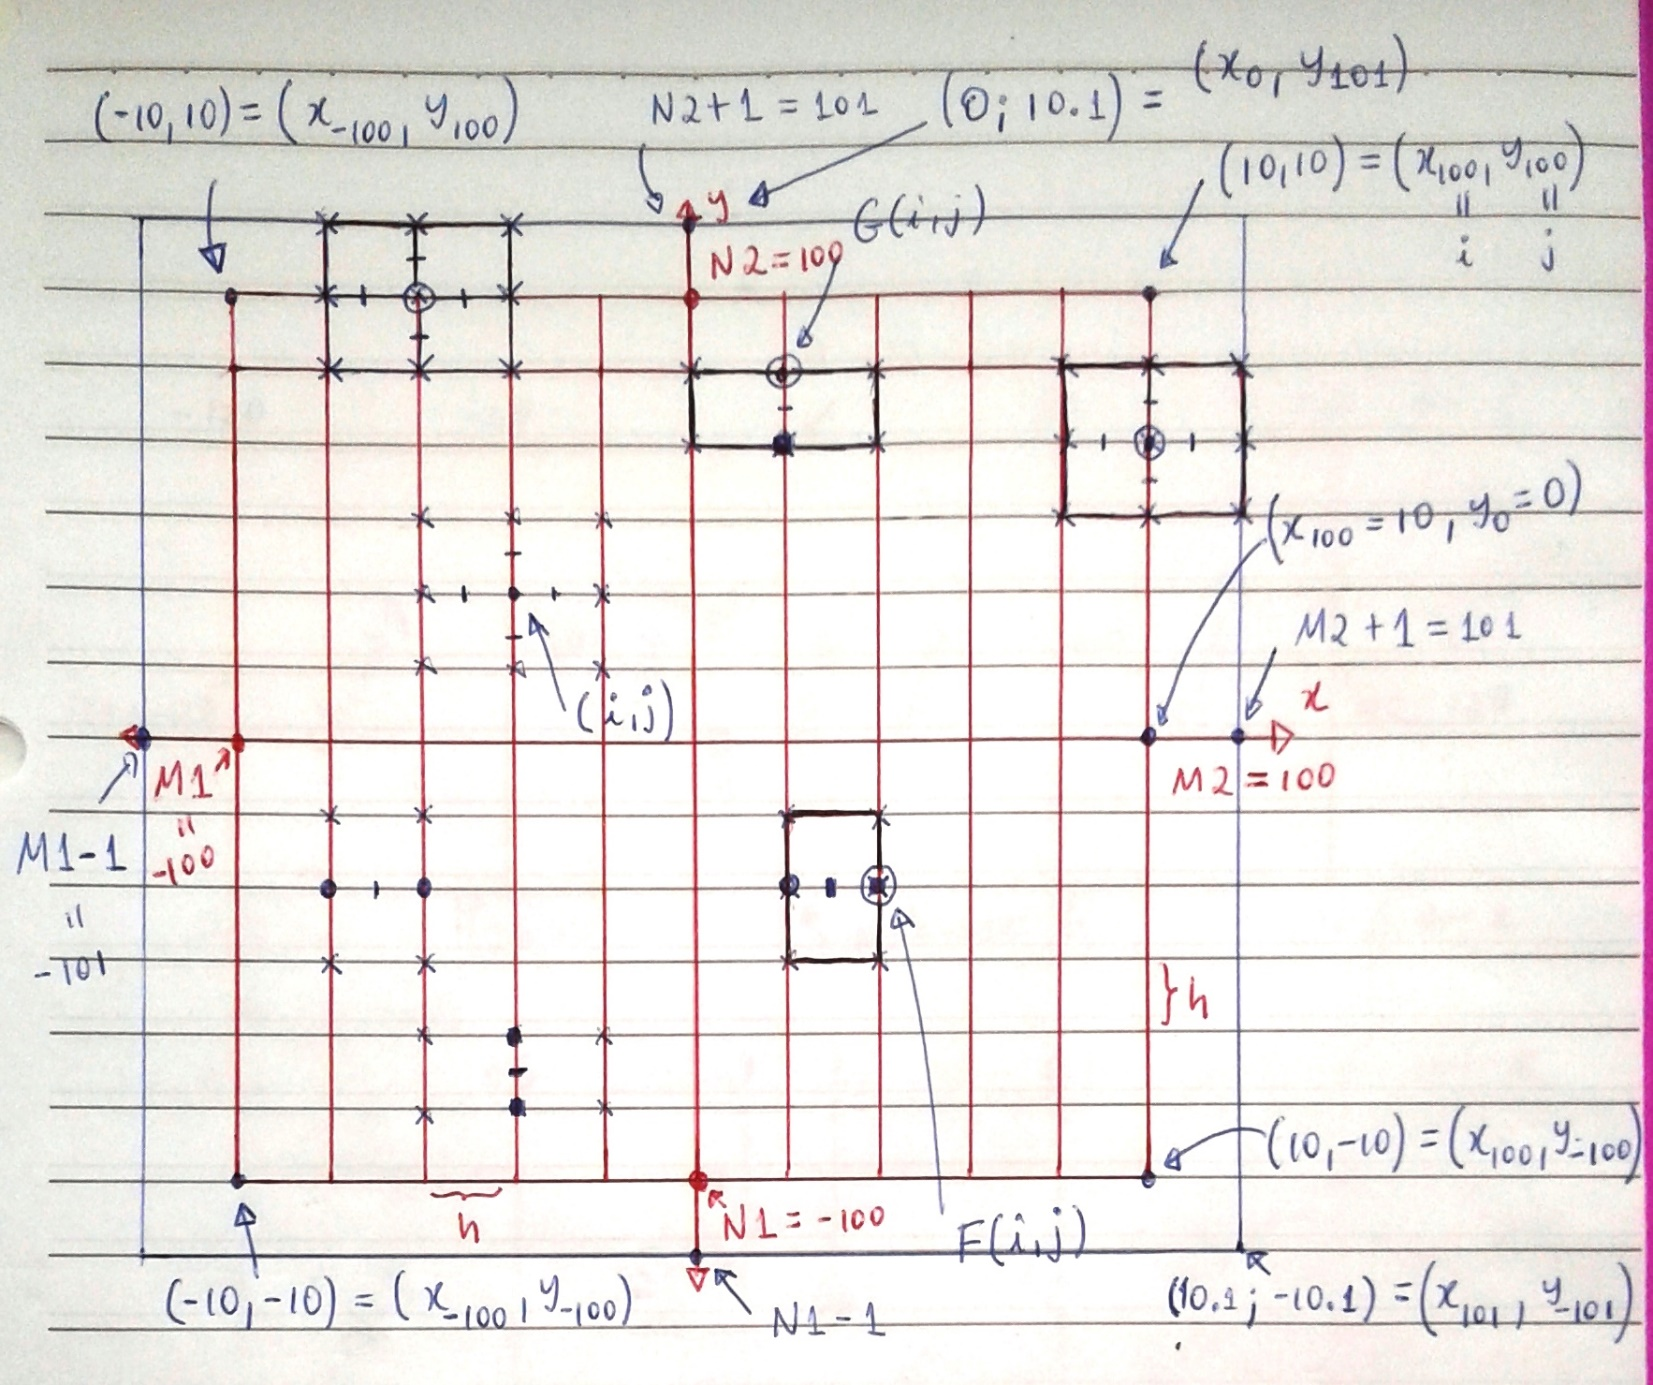 (-10,10) = (x₋₁₀₀, y₁₀₀)
N2+1 = 101
(0; 10.1) = (x₀, y₁₀₁)
(10,10) = (x₁₀₀, y₁₀₀)
= =
i j
y
G(i,j)
N2 = 100
(x₁₀₀ = 10, y₀ = 0)
M2 + 1 = 101
(i,j)
x
M1
=
-100
M2 = 100
M1-1
=
-101
} h
(10,-10) = (x₁₀₀, y₋₁₀₀)
h
N1 = -100
F(i,j)
(-10,-10) = (x₋₁₀₀, y₋₁₀₀)
N1-1
(10.1; -10.1) = (x₁₀₁, y₋₁₀₁)